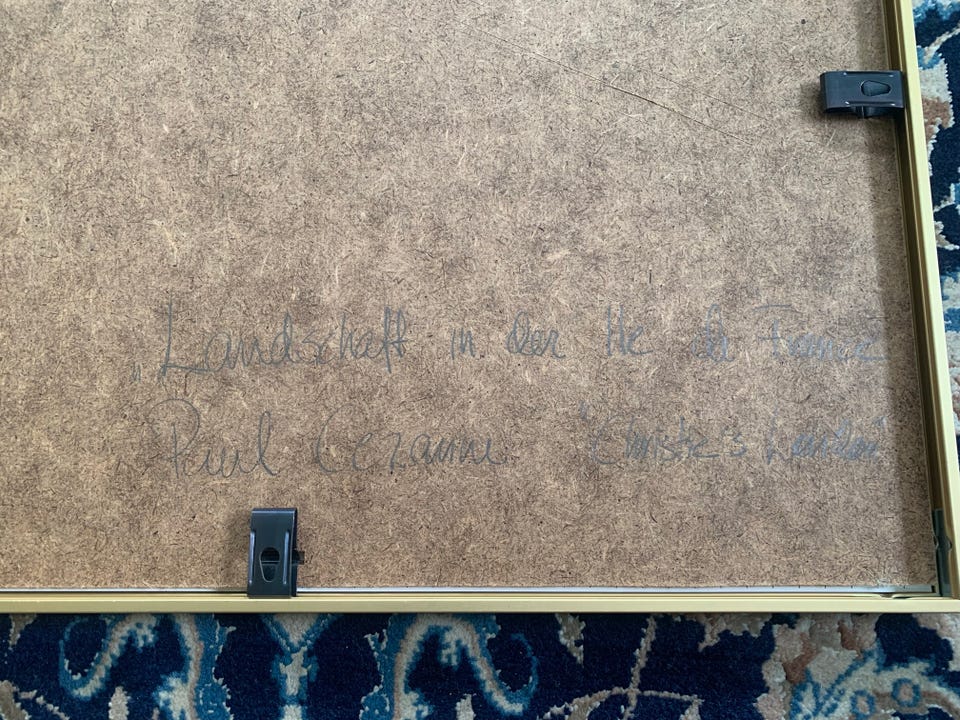 „Landschaft in der Ile de France
Paul Cezanne "Christie's London"